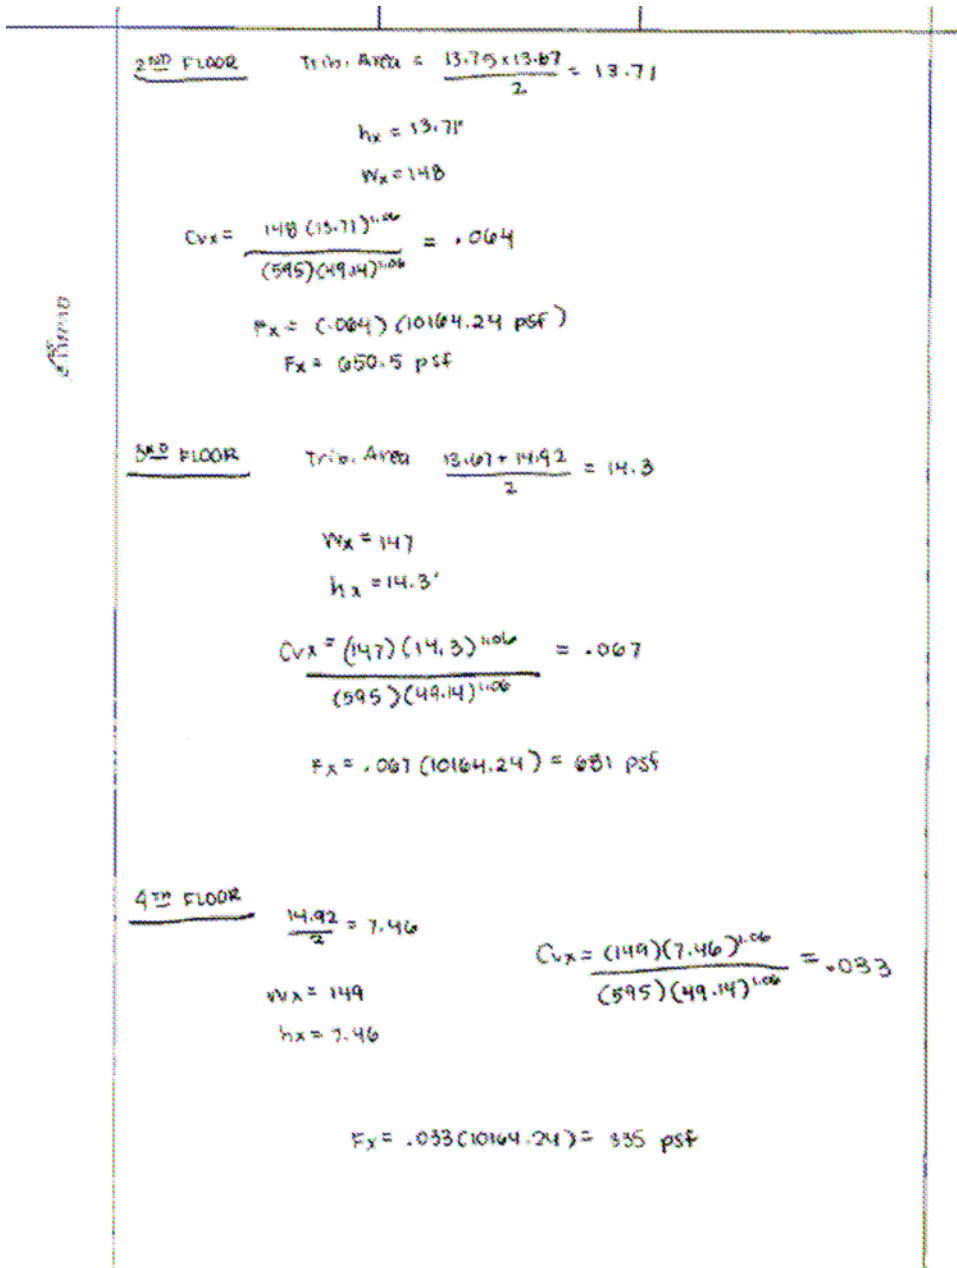 2ND FLOOR Trib. Area = 13.75 x 13.67 / 2 = 13.71
hx = 13.71'
Wx = 148
Cvx = 148 (13.71)^1.06 / (595)(49.14)^1.06 = .064
Fx = (.064)(10164.24 psf)
Fx = 650.5 psf
3RD FLOOR Trib. Area 13.67 + 14.92 / 2 = 14.3
Wx = 147
hx = 14.3'
Cvx = (147)(14.3)^1.06 / (595)(49.14)^1.06 = .067
Fx = .067 (10164.24) = 681 psf
4TH FLOOR 14.92 / 2 = 7.46
Cvx = (149)(7.46)^1.06 / (595)(49.14)^1.06 = .033
Wx = 149
hx = 7.46
Fx = .033 (10164.24) = 335 psf